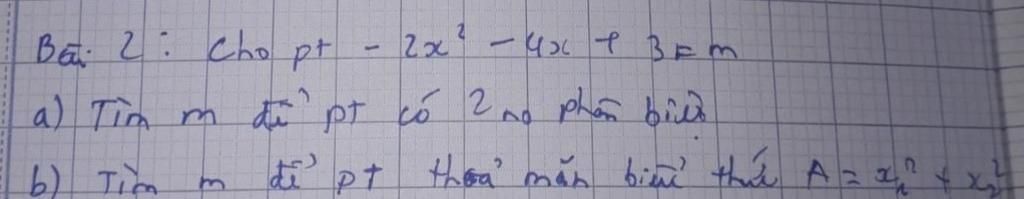 Bài 2 : Cho pt - 2x² - 4x + 3 = m
a) Tìm m để pt có 2 no phân biệt
b) Tìm m để pt thoả mãn biểu thức A = x₁² + x₂²